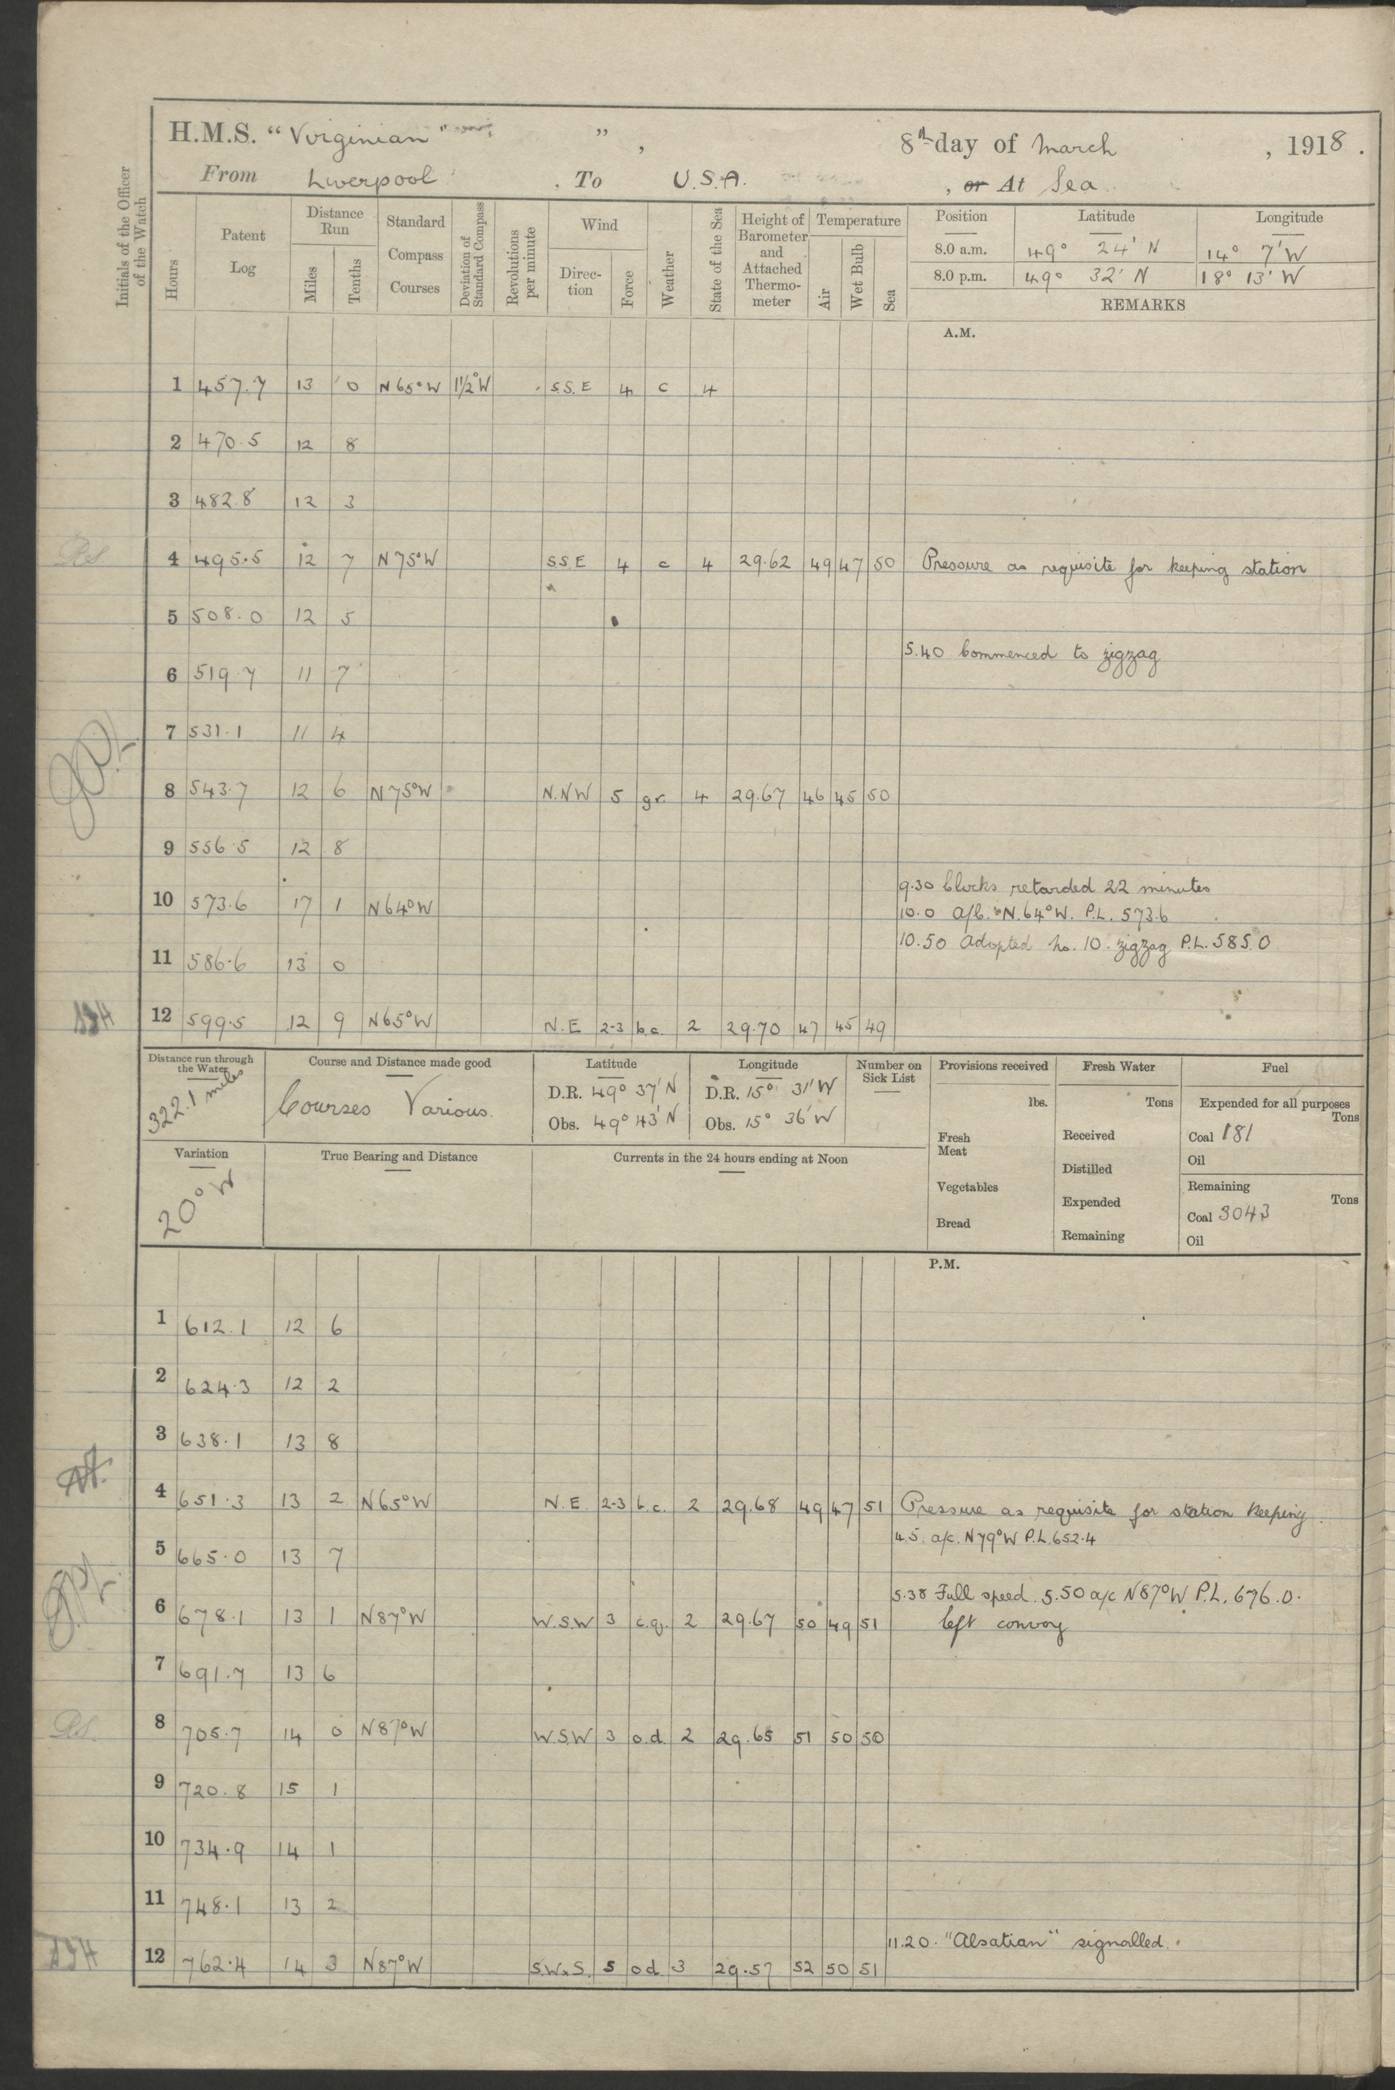 H.M.S. "Virginian" ", 8th day of March, 1918.
From Liverpool, To U.S.A., or At Sea
Initials of the Officer of the Watch
Hours Patent Log Distance Run Miles Tenths Standard Compass Courses Deviation of Standard Compass Revolutions per minute Wind Direction Force Weather State of the Sea Height of Barometer and Attached Thermometer Temperature Air Wet Bulb Sea Position Latitude Longitude
8.0 a.m. 49° 24' N 14° 7' W
8.0 p.m. 49° 32' N 18° 13' W
REMARKS
A.M.
1 457.7 13 0 N65°W 1½°W S.S.E 4 c 4
2 470.5 12 8
3 482.8 12 3
4 495.5 12 7 N75°W S.S.E 4 c 4 29.62 49 47 50 Pressure as requisite for keeping station
5 508.0 12 5
5.40 Commenced to zigzag
6 519.7 11 7
7 531.1 11 4
8 543.7 12 6 N75°W N.NW 5 gr 4 29.67 46 45 50
9 556.5 12 8
9.30 Clocks retarded 22 minutes
10 573.6 17 1 N64°W 10.0 a/c. N.64°W. P.L. 573.6
10.50 Adopted no. 10. zigzag P.L. 585.0
11 586.6 13 0
12 599.5 12 9 N65°W N.E 2-3 b.c. 2 29.70 47 45 49
Distance run through the Water 322.1 miles
Course and Distance made good Courses Various.
Latitude D.R. 49° 37' N Obs. 49° 43' N
Longitude D.R. 15° 31' W Obs. 15° 36' W
Number on Sick List
Provisions received lbs. Fresh Meat Vegetables Bread
Fresh Water Tons Received Distilled Expended Remaining
Fuel Expended for all purposes Tons Coal 181 Oil
Remaining Tons Coal 3043 Oil
Variation 20° W
True Bearing and Distance
Currents in the 24 hours ending at Noon
P.M.
1 612.1 12 6
2 624.3 12 2
3 638.1 13 8
4 651.3 13 2 N65°W N.E. 2-3 b.c. 2 29.68 49 47 51 Pressure as requisite for station keeping.
4.5. a/c. N79°W P.L. 652.4
5 665.0 13 7
5.38 Full speed. 5.50 a/c N87°W P.L. 676.0.
6 678.1 13 1 N87°W W.S.W 3 c.q. 2 29.67 50 49 51 left convoy
7 691.7 13 6
8 705.7 14 0 N87°W W.S.W 3 o.d. 2 29.65 51 50 50
9 720.8 15 1
10 734.9 14 1
11 748.1 13 2
11.20. "Alsatian" signalled.
12 762.4 14 3 N87°W S.W.S. 5 o.d 3 29.57 52 50 51